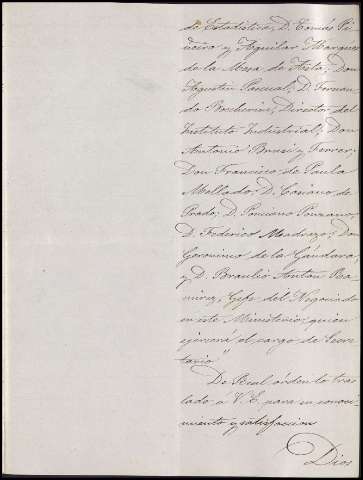 de Estadística, D. Tomás Pi-
ñeiro y Aguilar Marqués
de la Mesa de Asta; Don
Agustin Pascual; D. Fernan-
do Boccherini, Director del
Instituto Industrial; Don
Antonio Brusi y Ferrer;
Don Francisco de Paula
Mellado; D. Casiano de
Prado; D. Ponciano Ponzano;
D. Federico Madrazo; Don
Geronimo de la Gándara;
y D. Braulio Anton Ra-
mirez, Gefe del Negociado
en este Ministerio quien
ejercerá el cargo de Secre-
tario"
De Real órden lo tras-
lado á V. E. para su conoci-
miento y satisfaccion
Dios